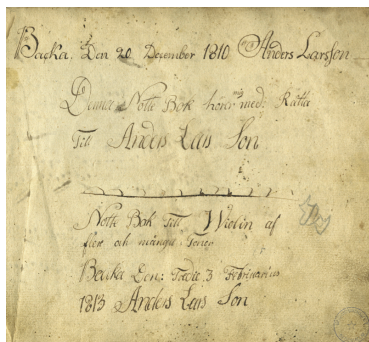 Backa. Den 20 December 1810 Anders Larsson
Denna Notte Bok hörer med Rätta
Till Anders Lars Son
Notte Bok Till Wiolin af
fler och många Toner
Backa Den: 3 Februarius
1813 Anders Lars Son